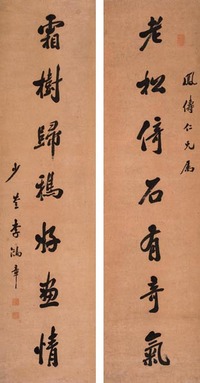 鳳傅仁兄屬
老松倚石有奇氣
霜樹歸鴉好畫情
少荃李鴻章